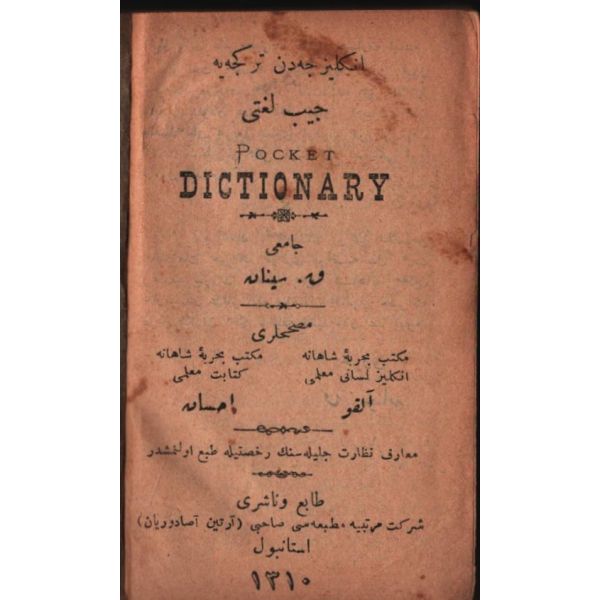 انكليزجه‌دن تركجه‌يه
جيب لغتى
POCKET
DICTIONARY
جامعى
ق. سينان
مصححلرى
مكتب بحريهٔ شاهانه
انكليز لسانى معلمى
آلقو
مكتب بحريهٔ شاهانه
كتابت معلمى
احسان
معارف نظارت جليله‌سنك رخصتيله طبع اولنمشدر
طابع وناشرى
شركت مرتبيه مطبعه‌سى صاحبى (آرتين آصادوريان)
استانبول
١٣١٠